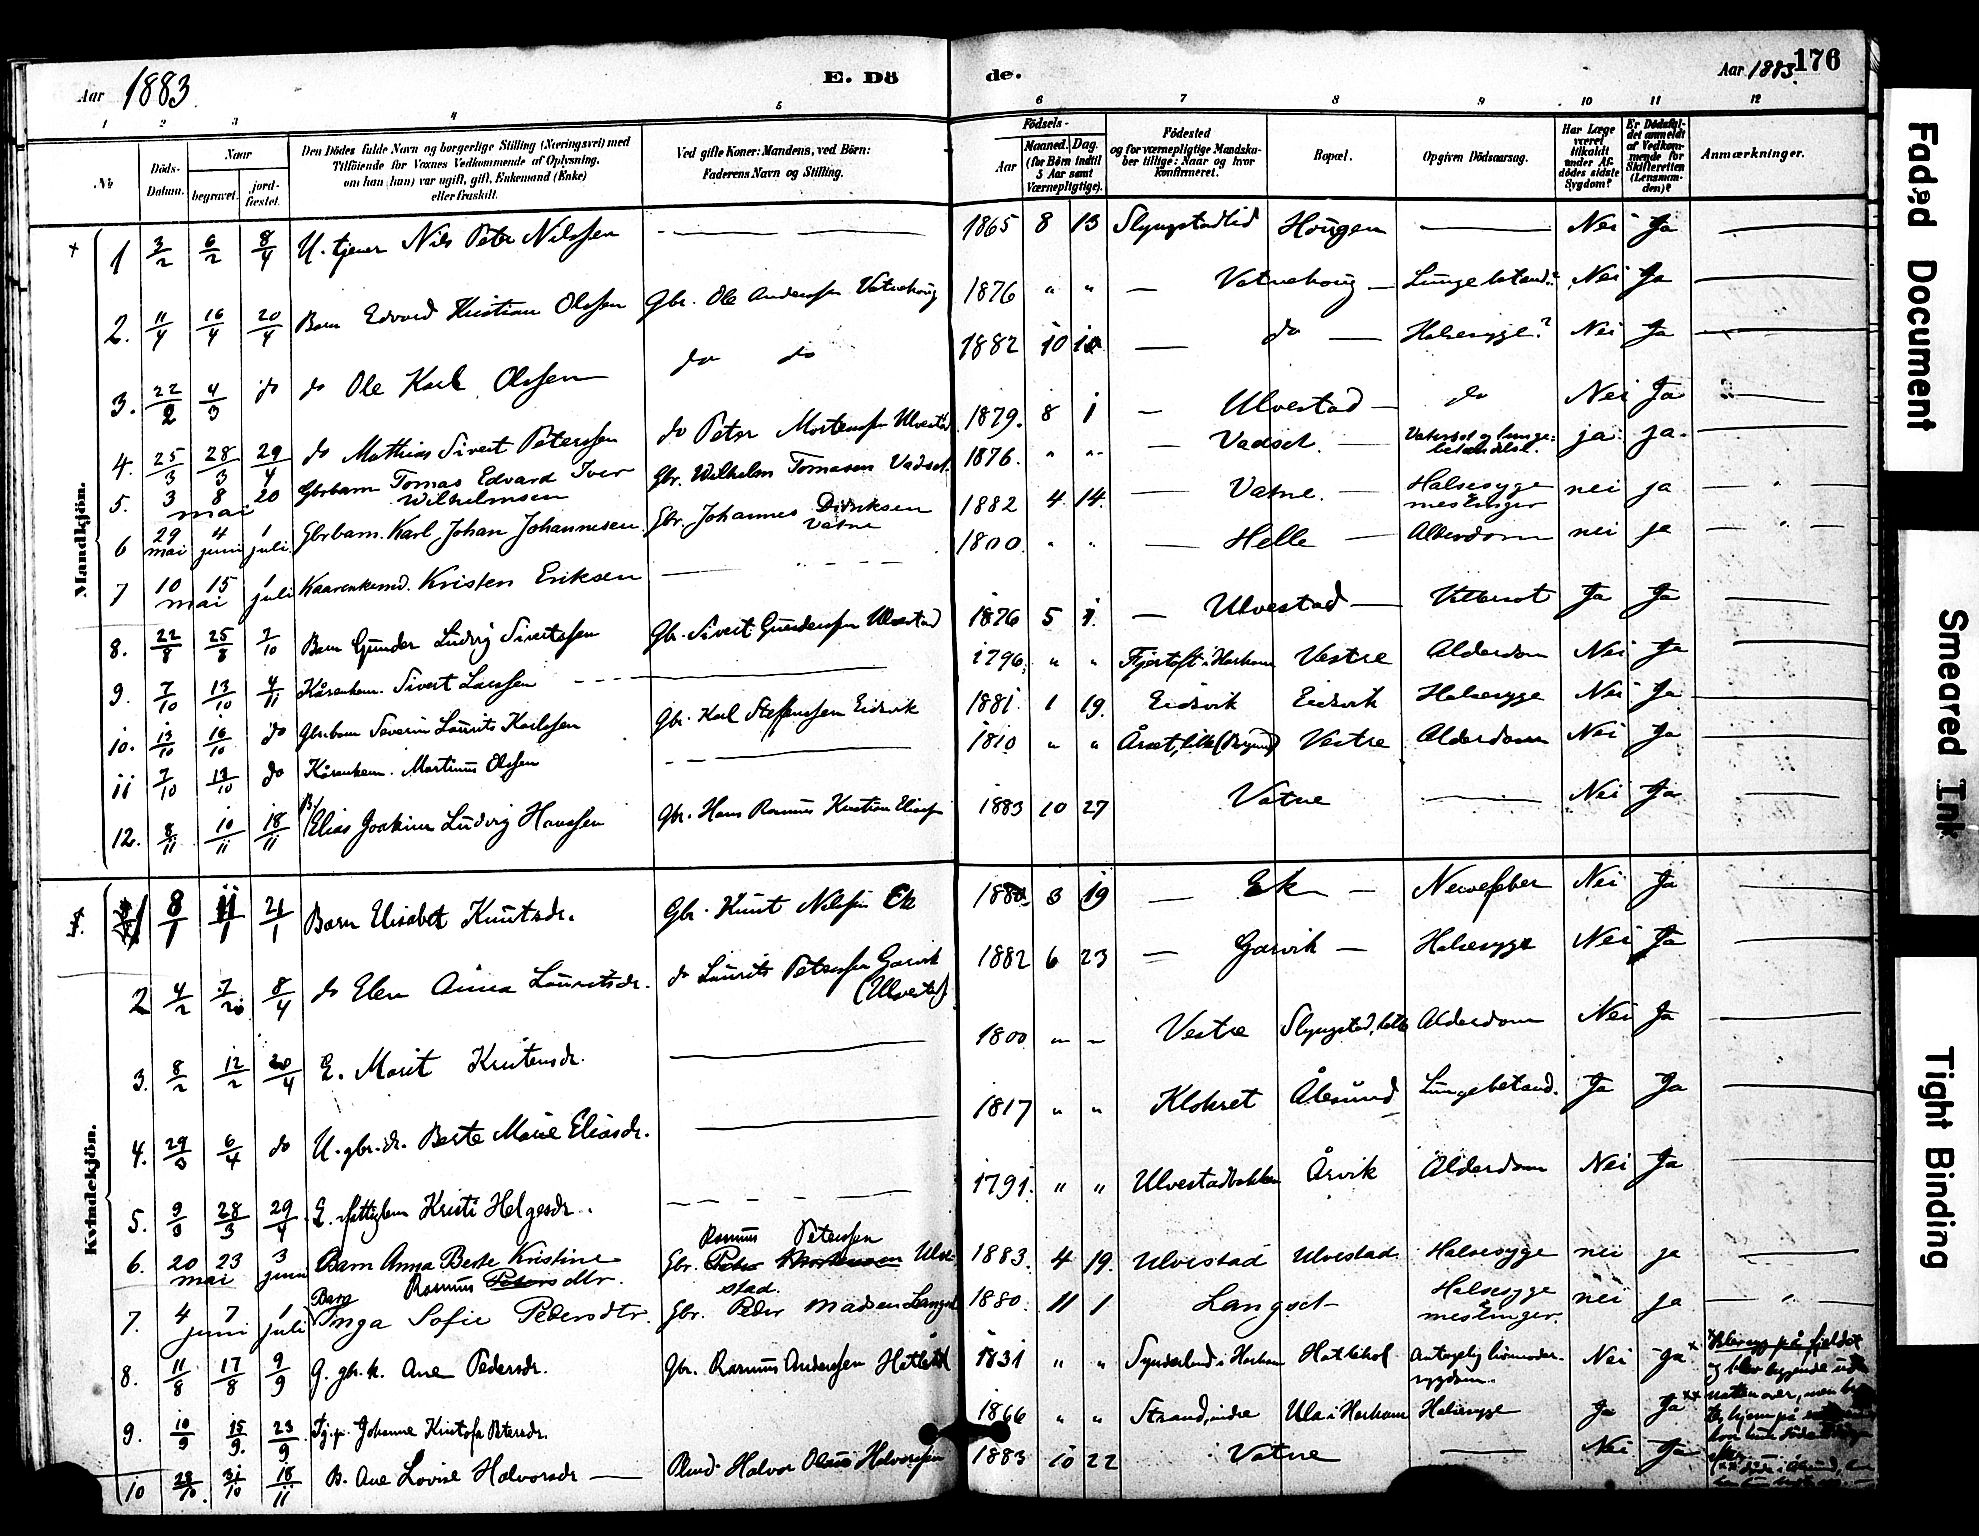 Aar 1883. E. Dö de. Aar 1883. 176
1 2 3 4 5 6 7 8 9 10 11 12
No
Döds-Datum.
Naar
begravet.
jord-fæstet.
Den Dödes fulde Navn og borgerlige Stilling (Næringsvei) med
Tilföiende for Voxnes Vedkommende af Oplysning,
om han (hun) var ugift, gift, Enkemand (Enke)
eller fraskilt.
Ved gifte Koner: Mandens, ved Börn:
Faderens Navn og Stilling.
Födsels-
Aar
Maaned. Dag.
(for Börn indtil
5 Aar samt
Værnepligtige).
Födested
og for værnepligtige Mandska-
ber tillige: Naar og hvor
konfirmeret.
Bopæl.
Opgiven Dödsaarsag.
Har Læge
været
tilkaldt
under Af-
dödes sidste
Sygdom?
Er Dödsfal-
det anmeldt
af Vedkom-
mende for
Skifteretten
(Lensman-
den)?
Anmærkninger.
Mandkjön.
1 3/2 6/2 8/4 U. tjener Nils Peter Nilssen — — 1865 8 13 Slyngstadlid Hougen — Nei Ja —
2. 11/4 16/4 20/4 Barn Edvard Kristian Olssen Gbr. Ole Anderssen Vatnehoug 1876 " " — Vatnehoug — Lungebetænd. Nei Ja —
3. 22/2 4/3 do do Ole Karl Olssen do do 1882 10 10 — do — Halsesyge? Nei Ja —
4. 25/3 28/3 29/4 do Mathias Sivert Peterssen do Peter Mortenssen Ulvestad 1879. 8 1 — Ulvestad — do Nei Ja —
5. 3 8 20 mai Gbrbarn Tomas Edvard Iver Wilhelmsen Gbr. Wilhelm Tomasen Vadset. 1876. " " — Vadset. — Vatersot og lunge-betændelse. ja. ja. —
6 29 mai 4 juni 1 juli Gbrbarn. Karl Johan Johannesen. Gbr. Johannes Didriksen Vatne 1882 4. 14. — Vatne. — Halsesyge meslinger nei ja — " —
7 10 15 mai 1 juli Kaarenkemd. Kristen Eriksen — 1800. " " — Helle — Alderdom nei ja — " —
8. 22/8 25/8 7/10 Barn Gunder Ludvig Sivertssen Gbr. Sivert Gunderssen Ulvestad 1876 5 1. — Ulvestad — Vatersot Ja Ja —
9. 7/10 13/10 4/11 Kårenkem. Sivert Larssen — 1796. " " Fjørtoft i Harham Vestre Alderdom Nei Ja —
10. 13/10 16/10 do Gbrbarn Severin Laurits Karlssen Gbr. Karl Steffenssen Eidsvik 1881. 1 19. Eidsvik Eidsvik Halsesyge Nei Ja —
11 7/10 13/10 do Kårenkem. Martinus Olssen — 1810 " " Årset, lille (Borgund) Vestre Alderdom Nei Ja —
12. 8/11 10/11 18/11 B/ Elias Joakim Ludvig Hanssen Gbr. Hans Rasmus Kristian Eliass. 1883 10 27 Vatne — Nei Ja —
Kvindekjön.
1 8/1 11/1 21/1 Barn Elisabet Knutsdr. Gbr. Knut Nilssen Ek 3 19 — Ek — Nervefeber Nei Ja —
2 4/2 do Elen Anna Lauritsdr. do Laurits Peterssen Gjørvik (Ulvestad) 1882 6 23 — Gjørvik — Halsesyge Nei Ja —
3. 8/2 12/2 20/4 E. Marit Kristensdr. — 1800 " — Vestre Slyngstad, lille Alderdom Nei Ja —
4. 29/3 6/4 do U. gbr.dr. Berte Marie Eliasdr. — 1817 " " Klokset Ålesund Lungebetænd. Ja Ja —
5. 9/3 28/3 29/4 E. fattiglem Kristi Helgesdr. — 1791. " " Ulvestadbakken Årvik Alderdom Nei Ja —
6. 20 23 mai 3 juni Barn Anna Berte Kristine Rasmus dtr. Gbr. Rasmus Peterssen Ulvestad. 1883. 4 19. Ulvestad Ulvestad. Halsesyge nei ja —
7. 4 7 juni 1 juli Barn Inga Sofie Pedersdtr. Gbr. Peder Madsen Langset 1880. 11 1 Langset Halsesyge meslinger. nei ja — " —
8. 11/8 17/8 9/9 G. gbr.k. Ane Pedersdr. Gbr. Rasmus Anderssen Hatlehol 1831 " " Synderland i Harham Hatlehol Antagelig livmoder-sygdom. Nei Ja x
9. 10/9 15/9. 23/9 Tj.p. Johanne Kristofa Petersdr. 1866 " " Strand, indre Ulla i Harham Halsesyge Ja Ja xx
10 28/10. 31/10 18/11 B. Ane Lovise Halvorsdr — Halvor Olaus Halvorssen 1883 10 22 Vatne — Nei Ja
x Blev syg på fjeldet
og blev liggende ude
natten over, men
hjem på
Faded Document
Smeared Ink
Tight Binding